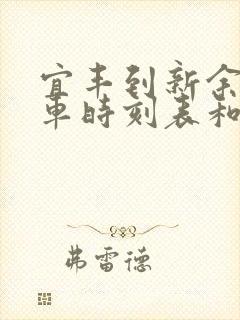 宜丰到新余
车时刻表和
弗雷德